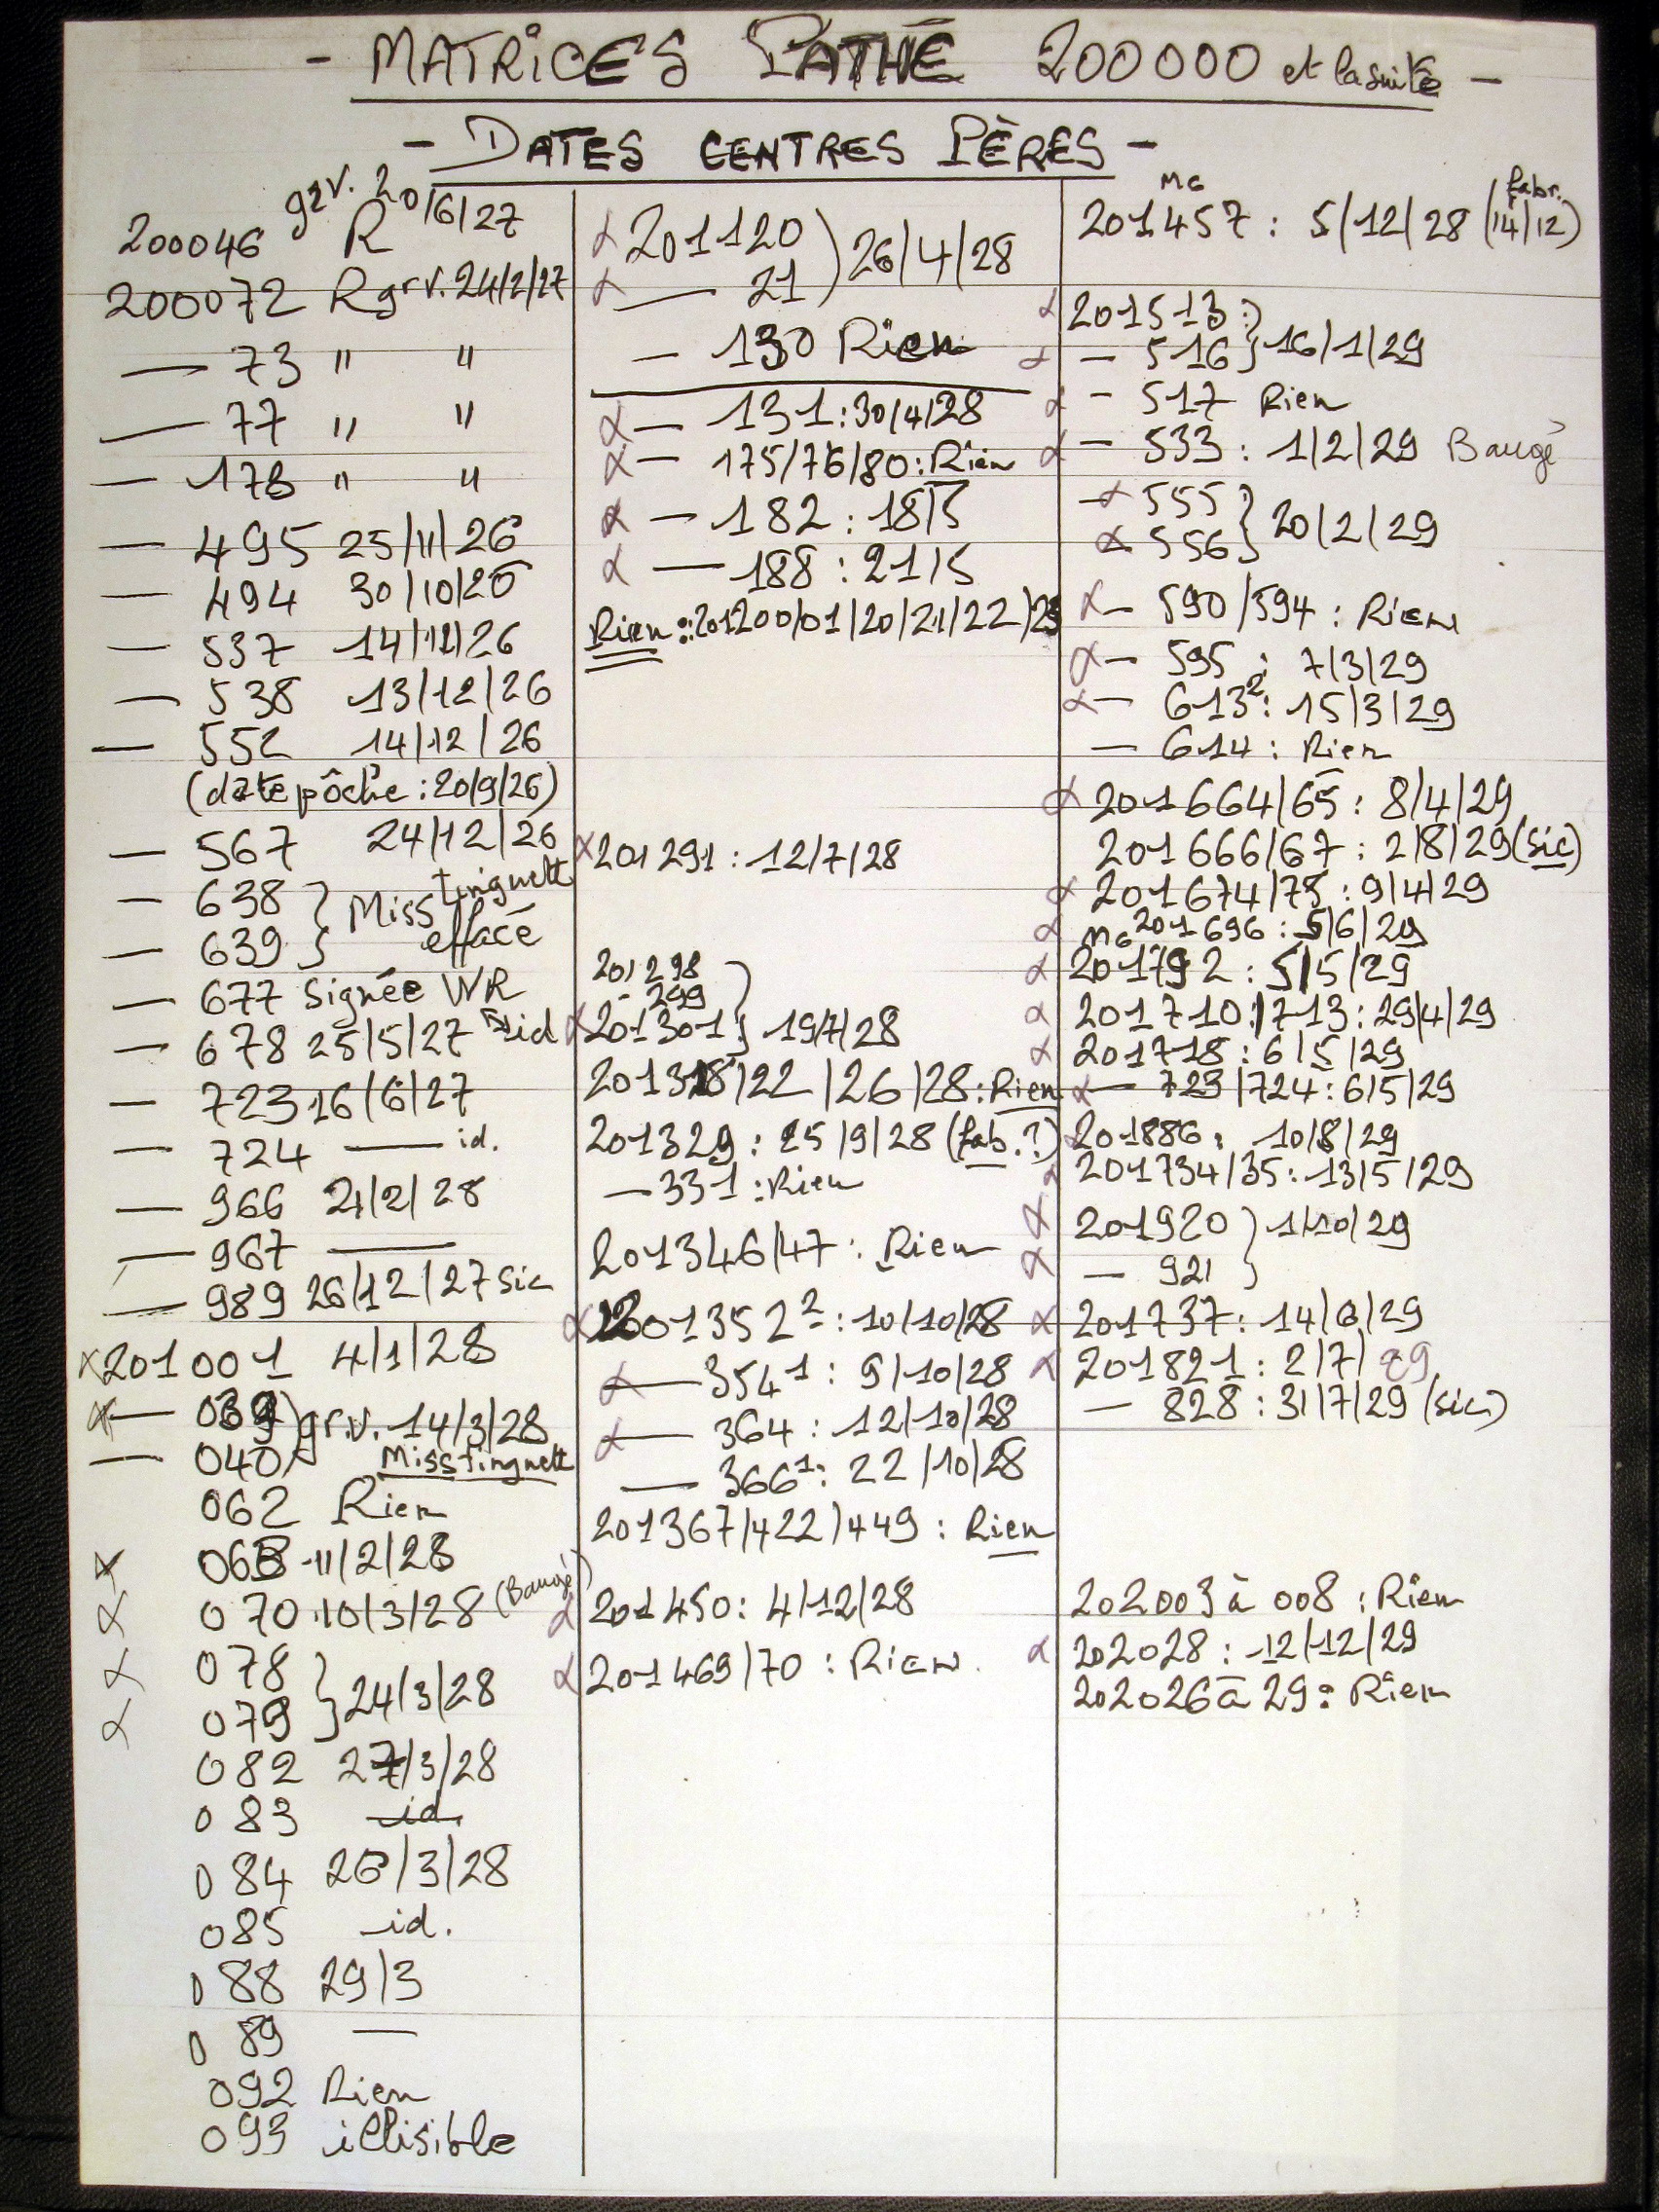 - MATRICES PATHÉ 200000 et la suite -
- DATES CENTRES PÈRES -
200046 R grv. 20/6/27
200072 R grv. 24/2/27
— 73 " "
— 77 " "
— 178 " "
— 495 25/11/26
— 494 30/10/26
— 537 14/12/26
— 538 13/12/26
— 552 14/12/26
(date pôche : 20/9/26)
— 567 24/12/26
— 638 } Miss tinguett
— 639 } effacé
— 677 Signée WR
— 678 25/5/27 id
— 723 16/6/27
— 724 — id.
— 966 21/2/28
— 967 —
— 989 26/12/27 sic
x 201001 4/1/28
x — 039 ) grv. 14/3/28
— 040 Misstinguett
062 Rien
x 063 11/2/28
x 070 10/3/28 (Baugé)
x 078 } 24/3/28
x 079 }
082 27/3/28
083 id.
084 26/3/28
085 id.
088 29/3
089 —
092 Rien
093 illisible
x 201120 ) 26/4/28
x — 21 )
— 130 Rien
x — 131 : 30/4/28
x — 175/76/80 : Rien
x — 182 : 18/5
x — 188 : 21/5
Rien : 201200/01/20/21/22/23
x 201291 : 12/7/28
201298 }
- 299 }
x 201301 } 19/7/28
201318/22/26/28 : Rien
201329 : 25/9/28 (fab. ?)
— 331 : Rien
201346/47 : Rien
x 201352² : 10/10/28
x — 354¹ : 9/10/28
x — 364 : 12/10/28
— 366¹ : 22/10/28
201367/422/449 : Rien
x 201450 : 4/12/28
x 201469/70 : Rien
MG
201457 : 5/12/28 (fabr. 14/12)
x 201513 : }
x — 516 } 16/1/29
x — 517 Rien
x — 533 : 1/2/29 Baugé
x 555 } 20/2/29
x 556 }
x — 590/594 : Rien
x — 595 : 7/3/29
x — 613² : 15/3/29
— 614 : Rien
x 201664/65 : 8/4/29
201666/67 : 2/8/29 (sic)
x 201674/75 : 9/4/29
x MG 201696 : 5/6/29
x 201792 : 5/5/29
x 201710/713 : 29/4/29
x 201718 : 6/5/29
x — 723/724 : 6/5/29
x 201886 : 10/8/29
x 201734/35 : 13/5/29
x 201920 } 1/10/29
x — 921 }
x 201737 : 14/6/29
x 201821 : 2/7/29
— 828 : 31/7/29 (sic)
202003 à 008 : Rien
x 202028 : 12/12/29
202026 à 29 : Rien